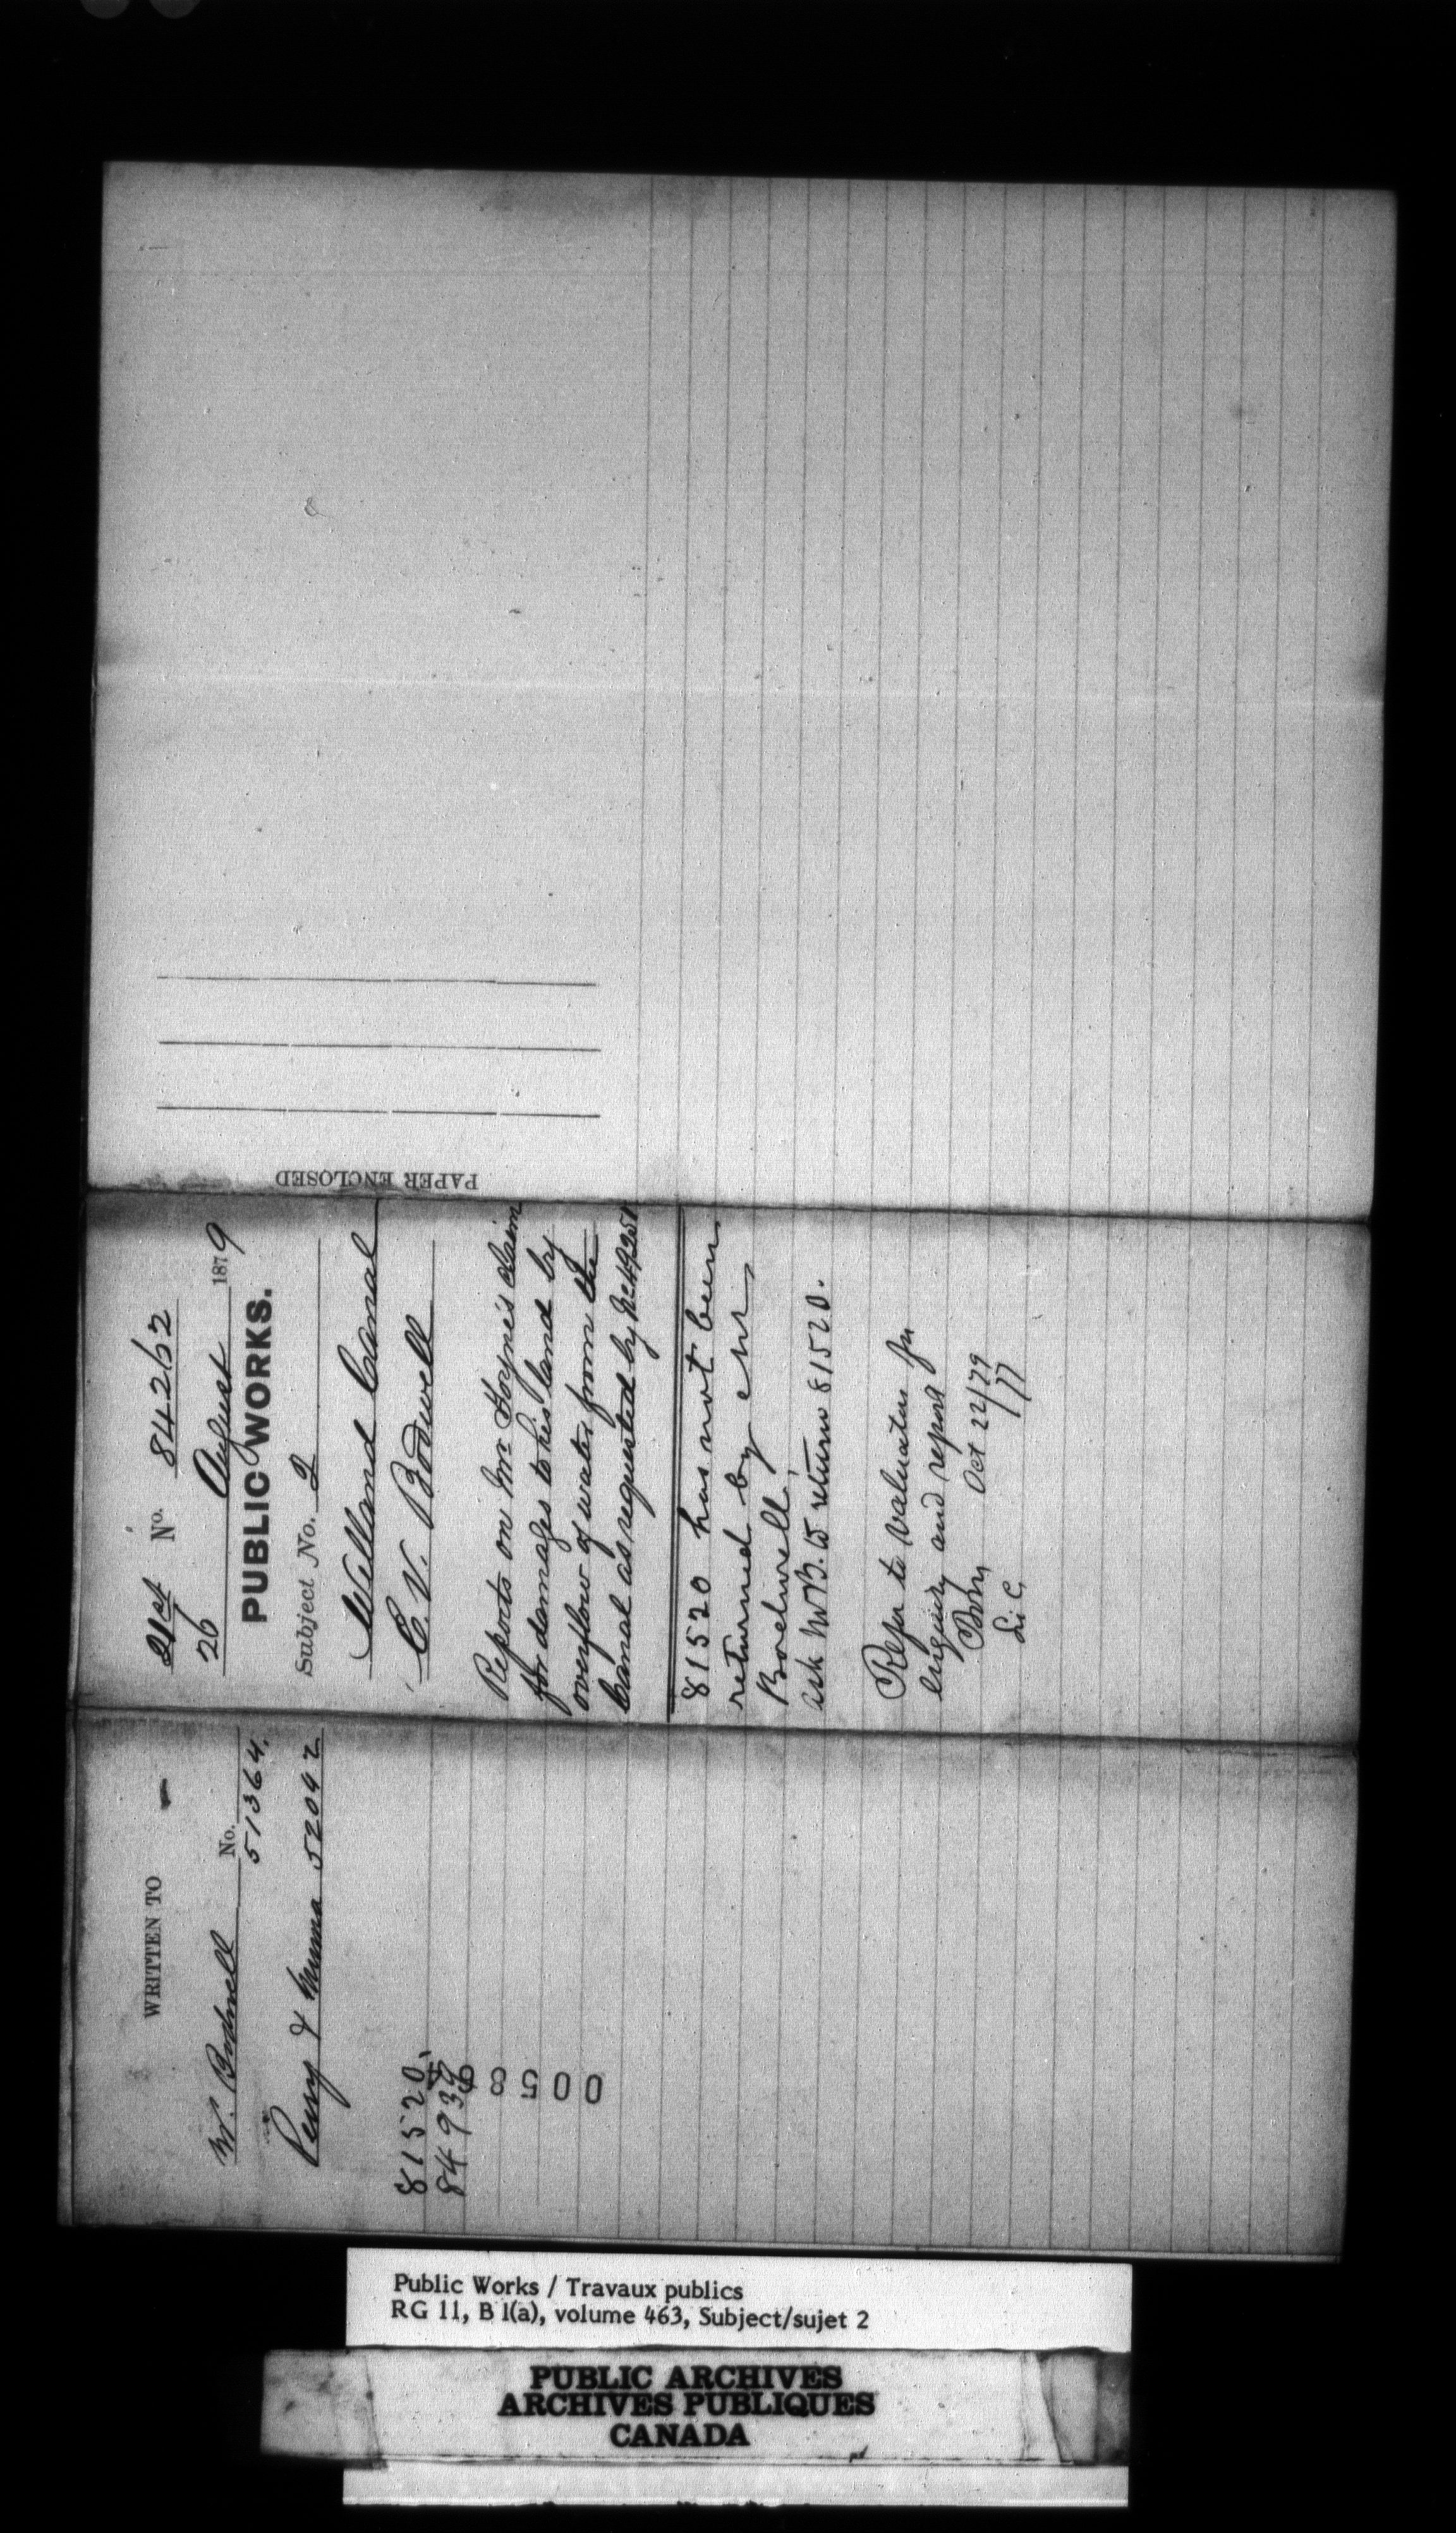 21st No. 84262
26 August 1879
PUBLIC WORKS.
Subject No. 2
Welland Canal
E. V. Bodwell
Reports on Mr claim
for damages to his land by
overflow of water from the
Canal as requested by No 49251
81520 has not been
returned by Mr
Bodwell.
ask Mr B. to return 81520.
Refer to Valuators for
enquiry and report
Oct 22/79
PAPER ENCLOSED
WRITTEN TO
Mr. Bodwell No. 51364.
Perry & 52092
81520.
84939
00588
Public Works / Travaux publics
RG 11, B 1(a), volume 463, Subject/sujet 2
PUBLIC ARCHIVES
ARCHIVES PUBLIQUES
CANADA